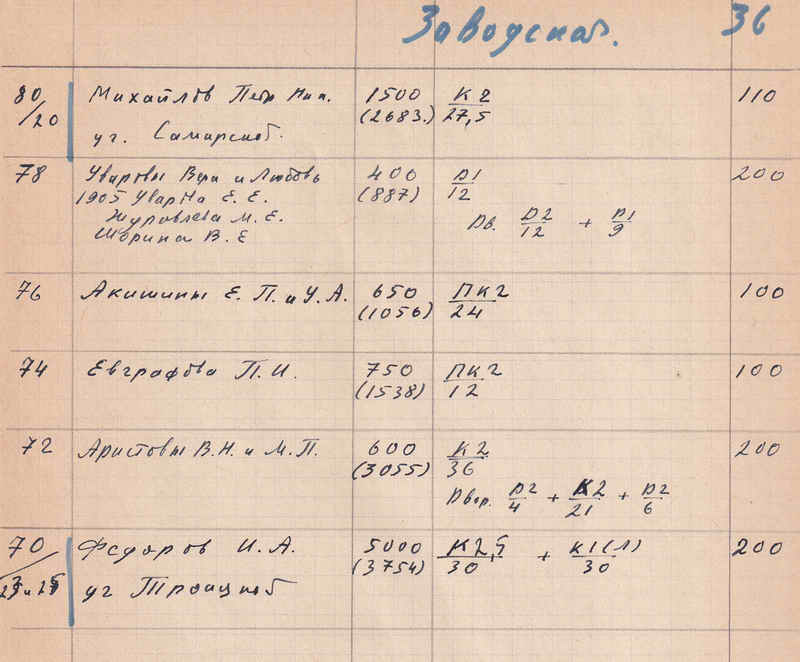 Заводская. 36
80/20 Михайлов Петр Ник. 1500 К2/27,5 110
(2683.)
уг. Самарской.
78 Уваровы Вера и Любовь 400 Д1/12 200
1905 Уварова Е. Е. (887)
Журавлева М. Е. Дв. Д2/12 + Д1/9
Шорина В. Е
76 Акишины Е. П. и У. А. 650 ПК2/24 100
(1056)
74 Евграфова П. И. 750 ПК2/12 100
(1538)
72 Аристовы В. Н. и М. П. 600 К2/36 200
(3055)
Двор. Д2/4 + К2/21 + Д2/6
70 Федоров И. А. 5000 К2,5/30 + К1(Л)/30 200
(3754)
уг Троицкой